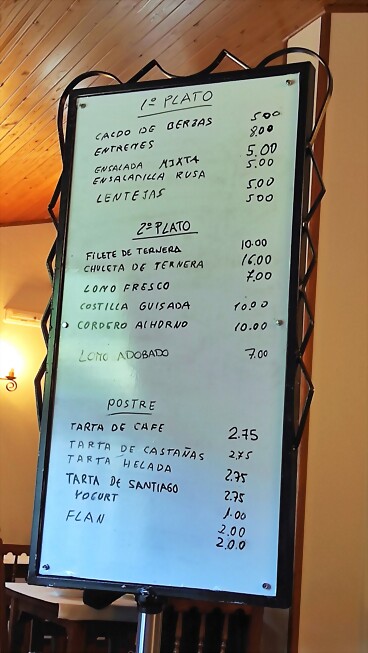 1º PLATO
CALDO DE BERZAS 500
ENTREMES 8.00
ENSALADA MIXTA 5.00
ENSALADILLA RUSA 5.00
LENTEJAS 5.00
500
2º PLATO
FILETE DE TERNERA 10.00
CHULETA DE TERNERA 16.00
LOMO FRESCO 7.00
COSTILLA GUISADA 10.00
CORDERO ALHORNO 10.00
LOMO ADOBADO 7.00
POSTRE
TARTA DE CAFE 2.75
TARTA DE CASTAÑAS 2.75
TARTA HELADA 2.75
TARTA DE SANTIAGO 2.75
YOGURT 1.00
FLAN 2.00
2.00